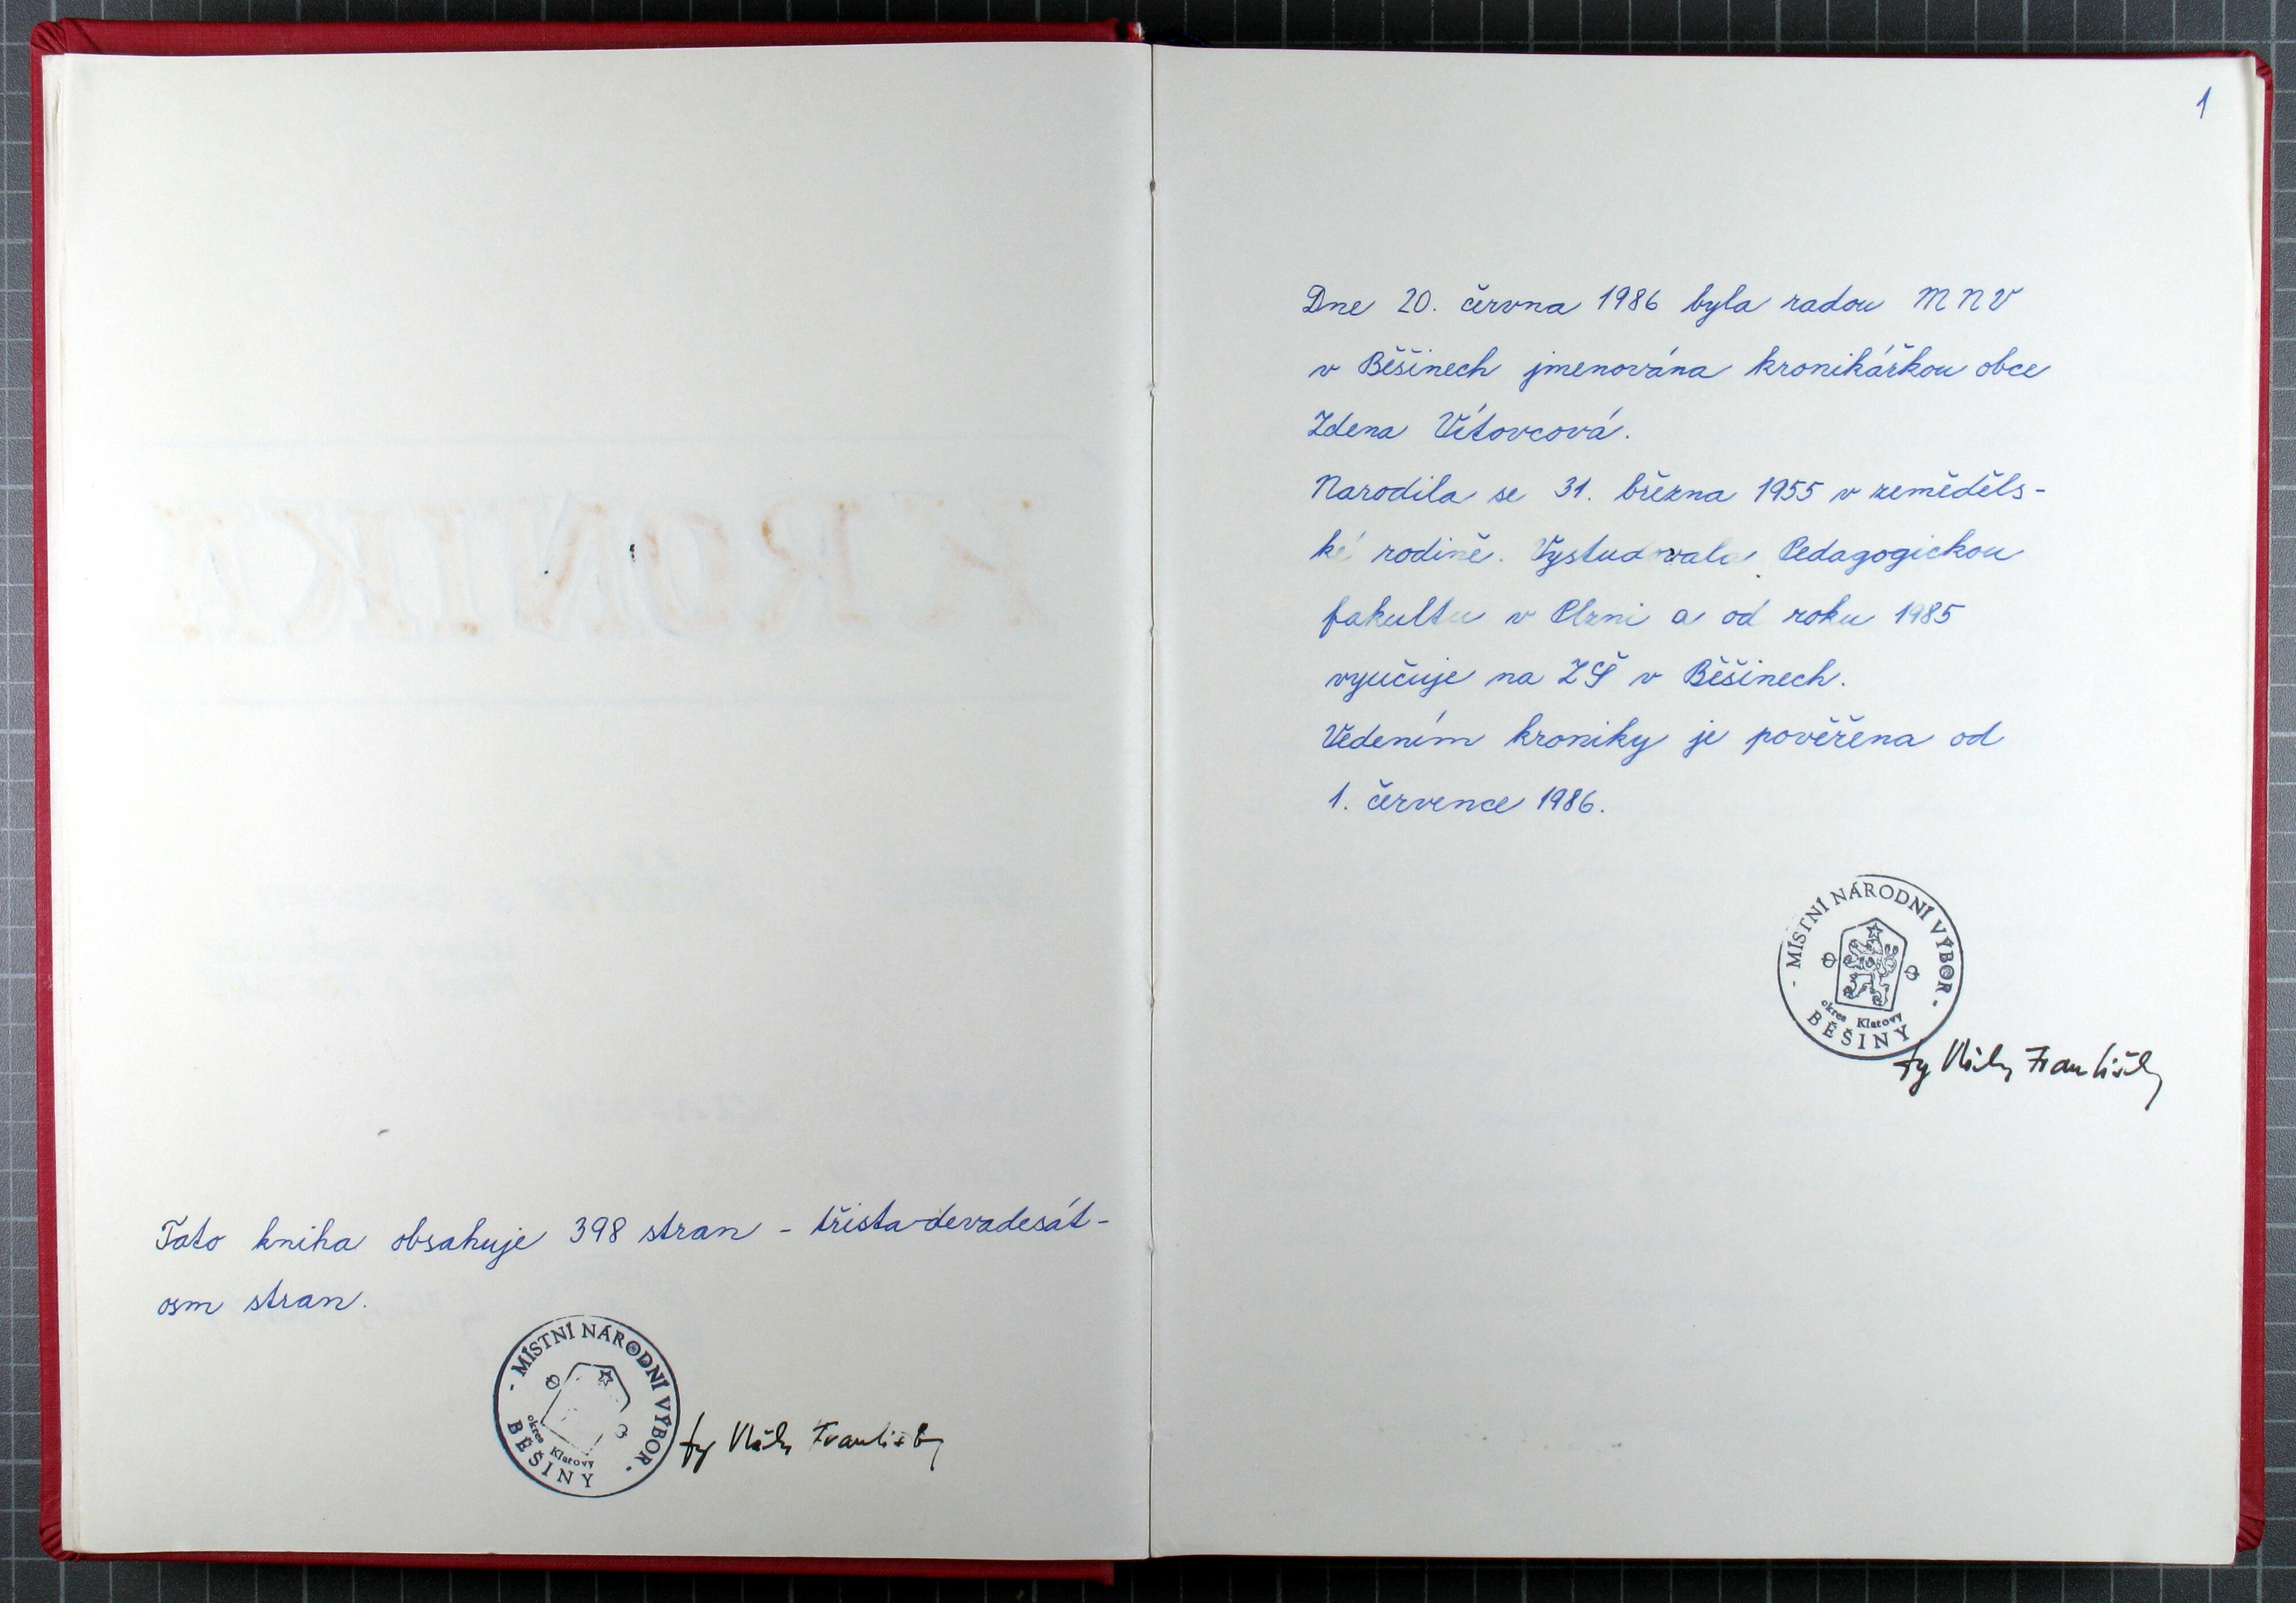 Tato kniha obsahuje 398 stran - třista-devadesát-
osm stran.
- MÍSTNÍ NÁRODNÍ VÝBOR -
okres Klatovy
BĚŠINY
František
1
Dne 20. června 1986 byla radou MNV
v Běšinech jmenována kronikářkou obce
Zdena Vítovcová.
Narodila se 31. března 1955 v zeměděls-
ké rodině. Vystudovala Pedagogickou
fakultu v Plzni a od roku 1985
vyučuje na ZŠ v Běšinech.
Vedením kroniky je pověřena od
1. července 1986.
- MÍSTNÍ NÁRODNÍ VÝBOR -
okres Klatovy
BĚŠINY
František